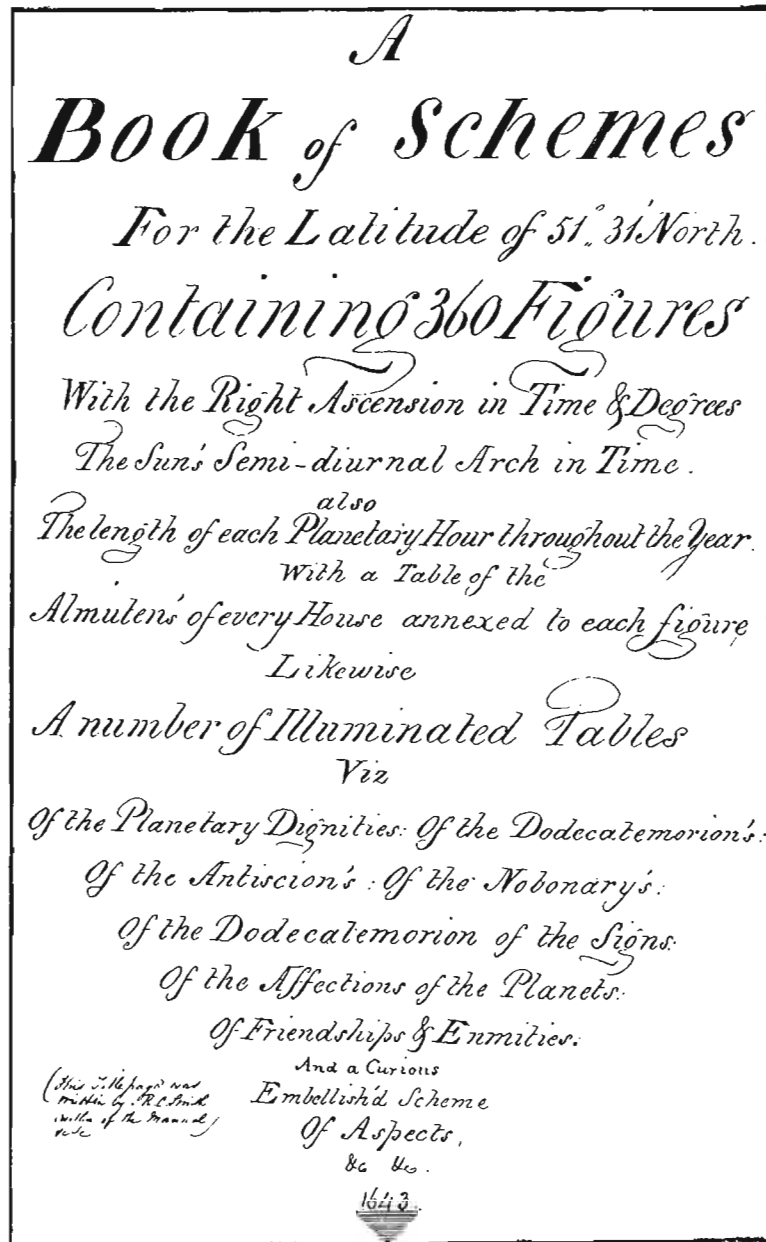 A
Book of Schemes
For the Latitude of 51°,, 31' North.
Containing 360 Figures
With the Right Ascension in Time & Degrees
The Sun's Semi-diurnal Arch in Time.
also
The length of each Planetary Hour throughout the Year.
With a Table of the
Almuten's of every House annexed to each figure,
Likewise
A number of Illuminated Tables
Viz
Of the Planetary Dignities: Of the Dodecatemorion's:
Of the Antiscion's: Of the Nobonary's:
Of the Dodecatemorion of the Signs:
Of the Affections of the Planets:
Of Friendships & Enmities.
And a Curious
Embellish'd Scheme
Of Aspects,
&c &c.
1643.
(This Titlepage was
written by R C Smith
of the Manual)